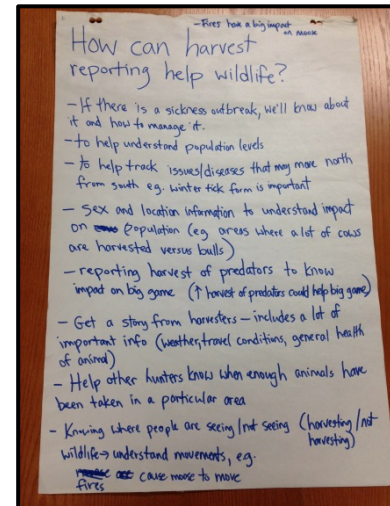 - Fires have a big impact
on moose
How can harvest
reporting help wildlife?
- If there is a sickness outbreak, we'll know about
it and how to manage it.
- to help understand population levels
- to help track issues/diseases that may move north
from south eg. winter tick form is important
- sex and location information to understand impact
on population (eg areas where a lot of cows
are harvested versus bulls)
- reporting harvest of predators to know
impact on big game (↑ harvest of predators could help big game)
- Get a story from harvesters - includes a lot of
important info (weather, travel conditions, general health
of animal)
- Help other hunters know when enough animals have
been taken in a particular area
- Knowing where people are seeing/not seeing (harvesting/not
harvesting)
wildlife → understand movements, eg.
fires cause moose to move